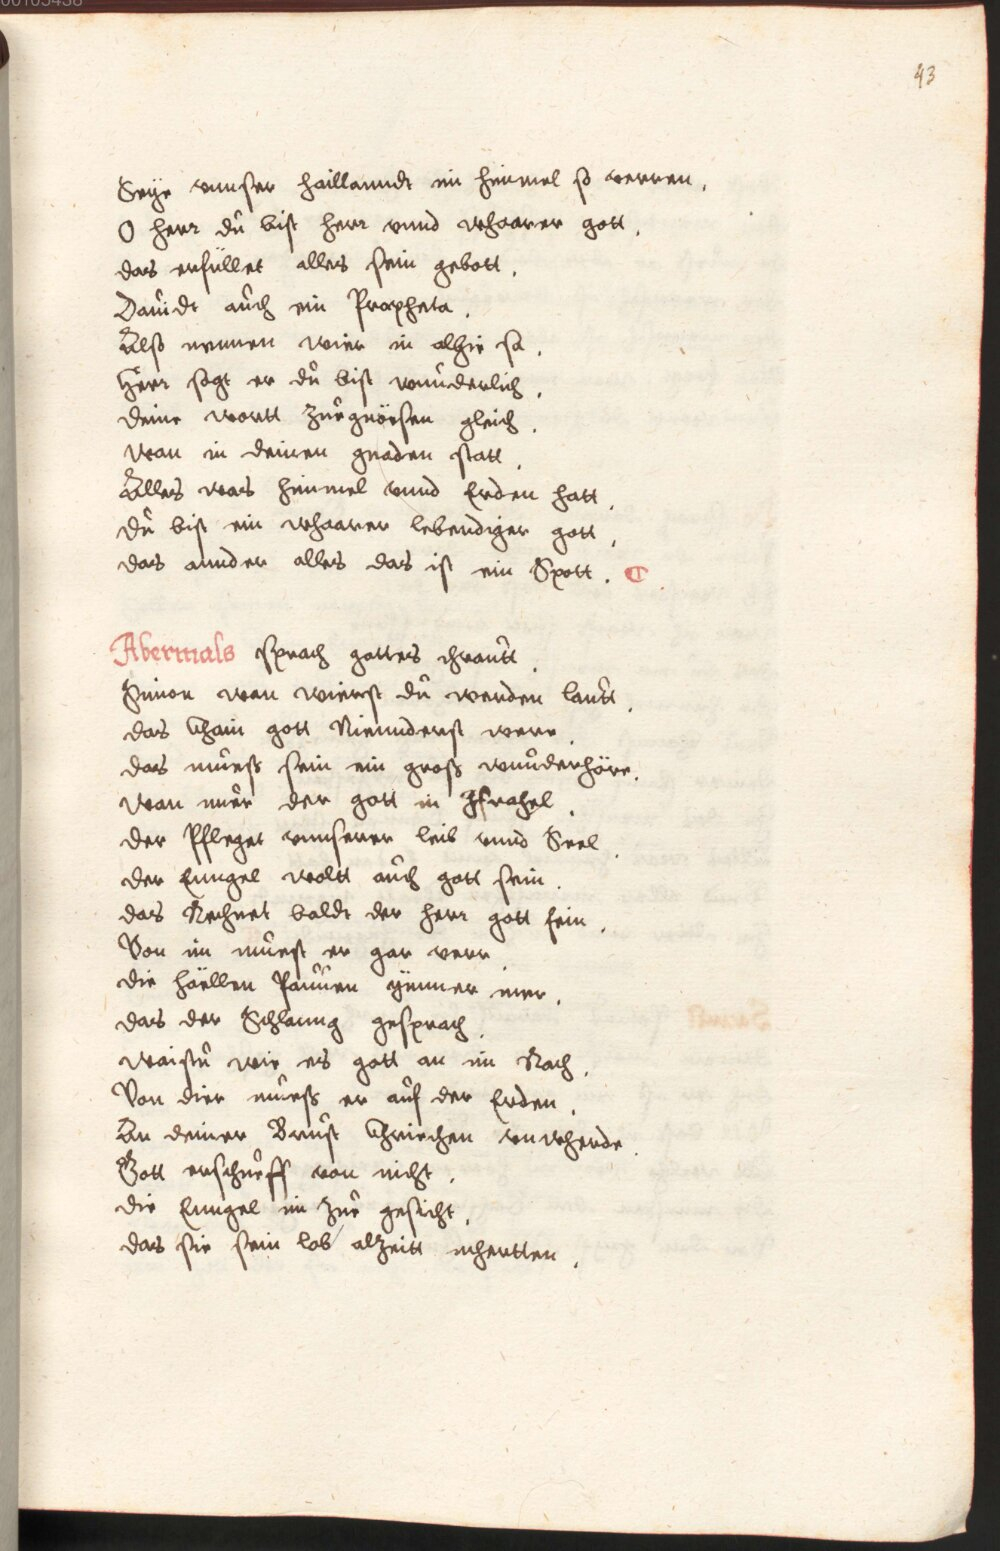 00103458
43
Seÿe vnnser haillanndt im himmel so verren,
O herr dů bist herr vnnd whaarer gott,
das erfüllet alles sein gebott,
Dauidt aůch ein Propheta,
Also nennen wier in alhie sa,
Herr sagt er dů bist wůnderlich,
deine wortt
gleich,
Wan in deinen gnaden statt,
Alles was himmel vnnd Erden hatt,
Dů bist ein whaarer lebendiger gott,
das annder alles das ist ein Spott,
Abermals sprach gottes chraůtt,
Simon wan wierst dů werden laůtt,
das Chain gott Niennderst were,
das můeß sein ein groß wůnderhöre,
Wan nůer der gott in Israhel,
der Pfleget vnnserer leib vnnd Seel,
der Enngel woltt aůch gott sein,
das Rechnet baldt der herr gott fein,
Von im můest er gar verr,
die häellen Paůuen ÿmmer mer,
das der Schlanng gesprach,
waistů wie es gott an im Rach,
Von dier můeß er aůf der Erden,
An deiner Brůst Chriechen vnwherde,
Gott erschůeff von nicht,
die Enngel im zůe gesicht,
das sie sein lob alzeitt mhertten,